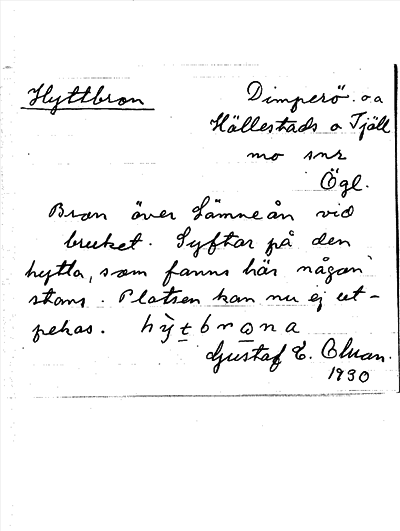 Hyttbron
Dimperö. o a
Hällestads o Tjäll
mo snr
Ögl.
Bron över Lämneån vid
bruket. Syftar på den
hytta, som fanns här någon
stans. Platsen kan nu ej ut-
pekas. hy̆tbrona
Gustaf E. Olman.
1930